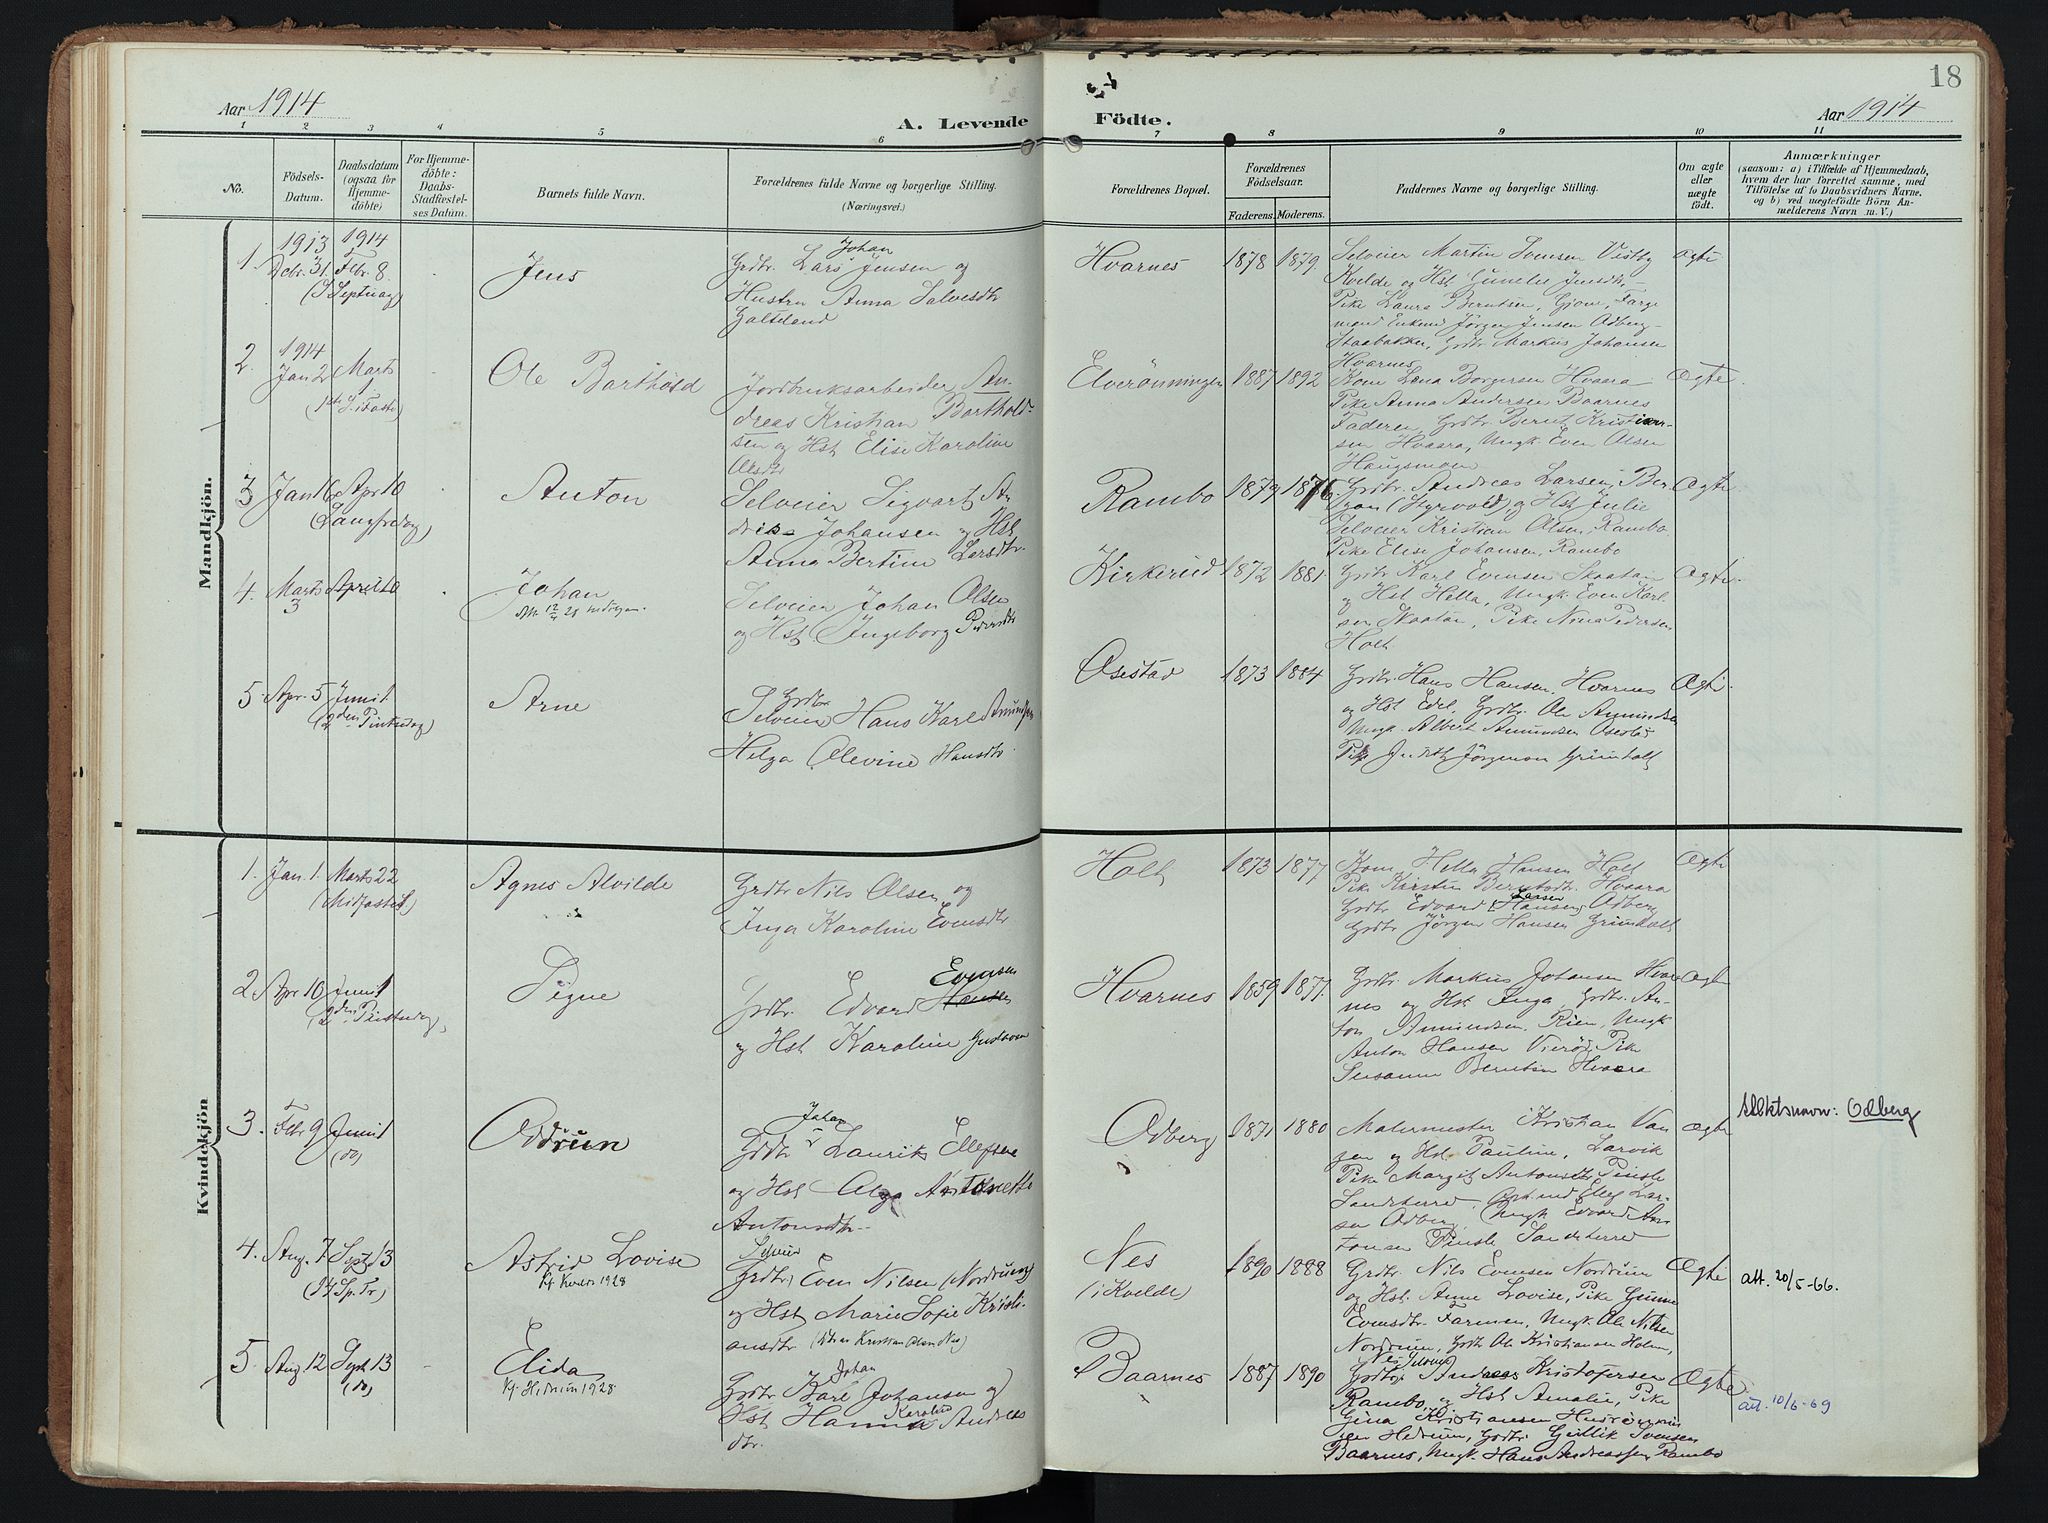 18
Aar 1914
A. Levende Födte.
Aar 1914
1 2 3 4 5 6 7 8 9 10 11
No.
Födsels-
Datum.
Daabsdatum
(ogsaa for
Hjemme-
döbte)
For Hjemme-
döbte:
Daabs-
Stadfæstel-
ses Datum.
Barnets fulde Navn.
Forældrenes fulde Navne og borgerlige Stilling.
(Næringsvei.)
Forældrenes Bopæl.
Forældrenes
Födselsaar.
Faderens. Moderens.
Faddernes Navne og borgerlige Stilling.
Om ægte
eller
uægte
födt.
Anmærkninger
(saasom: a) i Tilfælde af Hjemmedaab,
hvem der har forrettet samme, med
Tilföielse af to Daabsvidners Navne.
og b) ved uægtefödte Börn An-
melderens Navn m. V.)
Mandkjön.
1. 1913 Dcbr. 31. 1914 Febr. 8.
(S. Septuag)
Jens
Johan
Grdbr. Lars Jensen og
Hustru Anna Salvesdtr
Galteland
Hvarnes
1878 1879
Selveier Martin Svensen Vistby
Kvelde og Hst Gunelie Jensdtr,
Pike Laura Berntsen, Gjone, Farge
mand Enkem. Jørgen Jensen Odberg
Staabakken, Grdbr Markus Johansen
Hvarnes
Ægte
2. 1914 Jan 2 Marts 1
(1ste S. i Faste)
Ole Barthold
Jordbruksarbeider An-
dreas Kristian Barthold-
sen og Hst Elise Karoline
Olsdtr
Elverönningen
1887 1892
Kone Lena Borgersen Hvaara
Pike Anna Andersen Baarnes
Faderen, Grdbr Bernt Kristian-
sen Hvaara, Ungk. Even Olsen
Haugsmoen
Ægte
3 Jan 16 Apr 10
(Langfredag)
Anton
Selveier Sigvart An
dreas Johansen og Hst
Anna Bertine Larsdtr.
Rambo
1879 1876
Grdbr. Andreas Larsen, Ber
gan (Styrvold) og Hst Julie
Selveier Kristian Olsen, Rambo
Pike Elise Johansen, Rambo
Ægte
4. Marts 3 April 10
Johan
Selveier Johan Olsen
og Hst. Ingeborg Pedersdtr
Kirkerud
1872 1881
Grdbr Karl Evensen Skaatan
og Hst Hella, Ungk. Even Karl-
sen Skaatan, Pike Nina Pedersen
Holt
Ægte
5 Apr. 5 Juni 1
(2den Pintsedag)
Arne
Grdbr
Selveier Hans Karl Amundsen
Helga Olevine Hansdtr
Osestad
1873 1884
Grdbr. Hans Hansen, Hvarnes
og Hst Edel, Grdbr. Ole Amundsen
Ungk. Albert Amundsen Osestad
Pike Judith Jörgensen Grimholt
Ægte
Kvindekjön
1. Jan. 1. Marts 22
(Midfaste S.)
Agnes Alvilde
Grdbr Nils Olsen og
Inga Karoline Evensdtr
Holt
1873 1877
Kone Hella Hansen Holt
Pike Kirstin Berntsdtr. Hvaara
Grdbr Edvard (Hansen) Larsen Odberg
Grdbr Jörgen Hansen Grimholt
Ægte
2 Apr 10 Juni 1
(2den Pintsedag)
Signe
Grdbr. Edvard Hansen Evensen
og Hst Karoline
Hvarnes
1859 1877
Grdbr. Markus Johansen Hvar
nes og Hst Inga, Grdbr. An-
ton Amundsen, Rien, Ungk
Anton Hansen Vierød, Pike
Susanne Berntsen Hvaara
Ægte
3. Febr 9 Juni 1
(do)
Oddrun
Johan
Grdbr Laurits Ellefsen
og Hst Olga Antonette
Antonsdtr.
Odberg
1871 1880
Malermester Kristian Van
gen og Hst Pauline, Larvik
Pike Margit Antonsdtr Pinsle
Sandeherred, Ellef Lar-
sen Odberg, Ungk Edvard An
tonsen Pinsle Sandeherred
Ægte
Slektsnavn: Odberg
4. Aug. 7 Septr 13
(14 S. p. Tr.)
Astrid Lovise
1928
Selveier
Grdbr. Even Nilsen (Nordrum)
og Hst Marie Sofie Kristi-
ansdtr (Kristian Olsen Nes)
Nes
(i Kvelde)
1890 1888
Grdbr. Nils Evensen Nordrum
og Hst. Anne Lovise, Pike Gunne
Evensdtr. Farmen, Ungk. Ole Nilsen
Nordrum, Grdbr Ole Kristiansen Holm,
Nes
Ægte
att. 20/5-66.
5 Aug 12 Sept 13
(do)
Elida
Kf. Hedrum 1928
Johan
Grdbr Karl Johansen og
Hst Hanna Karoline Andreas
dtr.
Baarnes
1887 1890
Grdbr. Andreas Kristofersen
Rambo, og Hst Amalie, Pike
Gina Kristiansen
Hedrum, Grdbr. Gullik Svensen
Baarnes, Ungk. Hans Andreassen Rambo
Ægte
att. 10/6-69